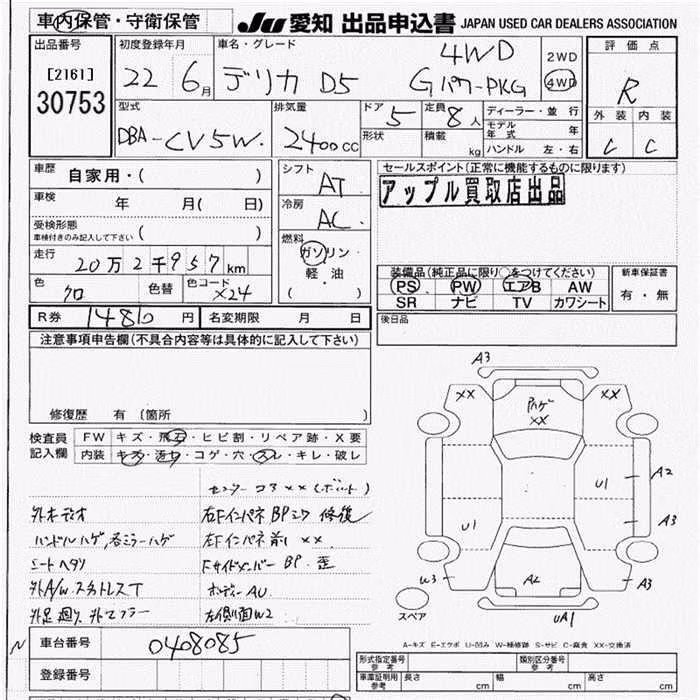 車内保管・守衛保管
JU 愛知 出品申込書 JAPAN USED CAR DEALERS ASSOCIATION
出品番号
[2161]
30753
初度登録年月
22年6月
車名・グレード
デリカ D5 4WD GパワーPKG
2WD
4WD
評価点
R
外装 内装
C C
型式
DBA-CV5W
排気量
2400cc
ドア
5
形状
定員
8人
積載
kg
ディーラー・並行
モデル年式 年
ハンドル 左・右
車歴 自家用・( )
車検 年 月( 日)
受検形態
車検付きのみ記入して下さい ( )
走行 20万2千957km
色 クロ 色替 色コード X24
R券 14810円 名変期限 月 日
シフト
AT
冷房
AC
燃料
ガソリン・
軽・油
( )
セールスポイント(正常に機能するものに限ります)
アップル買取店出品
装備品(純正品に限り○をつけてください)
PS PW エアB AW
SR ナビ TV カワシート
新車保証書
有・無
後日品
注意事項申告欄(不具合内容等は具体的に記入して下さい)
修復歴 有 (箇所
検査員
記入欄
FW キズ・飛石・ヒビ割・リペア跡・X要
内装 キズ・汚れ・コゲ・穴・スレ・キレ・破レ
外オーディオ
ハンドルハゲ,各ミラーハゲ
シートヘタリ
外A/W,スタットレスT
外足廻り 外マフラー
センターコアxx(ボルト)
右Fインパネ BP 修復
左Fインパネ前 xx
Fサイドメンバー BP 歪
ボディーAU
左側面W2
A3
XX
XX
ハゲ
XX
U1
A2
U1
A3
W3
A2
A3
UA1
スペア
A-キズ E-エクボ U-凹み W-補修跡 S-サビ C-腐食 XX-交換済
車台番号 0408085
登録番号
形式指定番号
参考
類別区分番号
参考
車庫証明用
参考
長さ cm
幅 cm
高さ cm